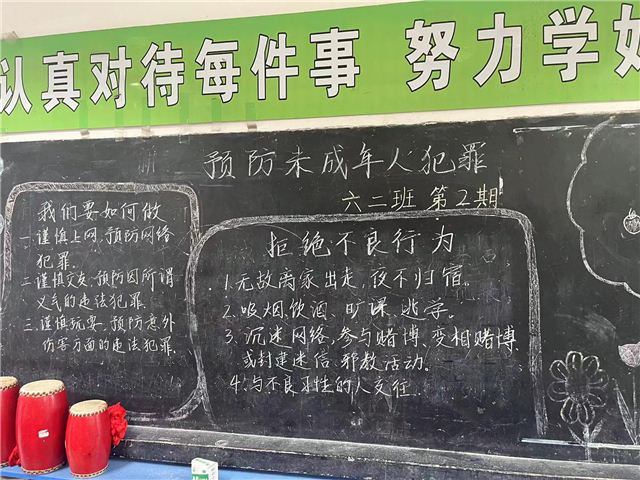 认真对待每件事 努力学好
预防未成年人犯罪
六二班 第2期
我们要如何做
一.谨慎上网,预防网络
犯罪.
二.谨慎交友,预防因所谓
义气的违法犯罪.
三.谨慎玩耍,预防意外
伤害方面的违法犯罪.
拒绝不良行为
1.无故离家出走,夜不归宿.
2.吸烟饮酒、旷课、逃学.
3.沉迷网络,参与赌博、变相赌博
或封建迷信、邪教活动.
4.与不良习性的人交往